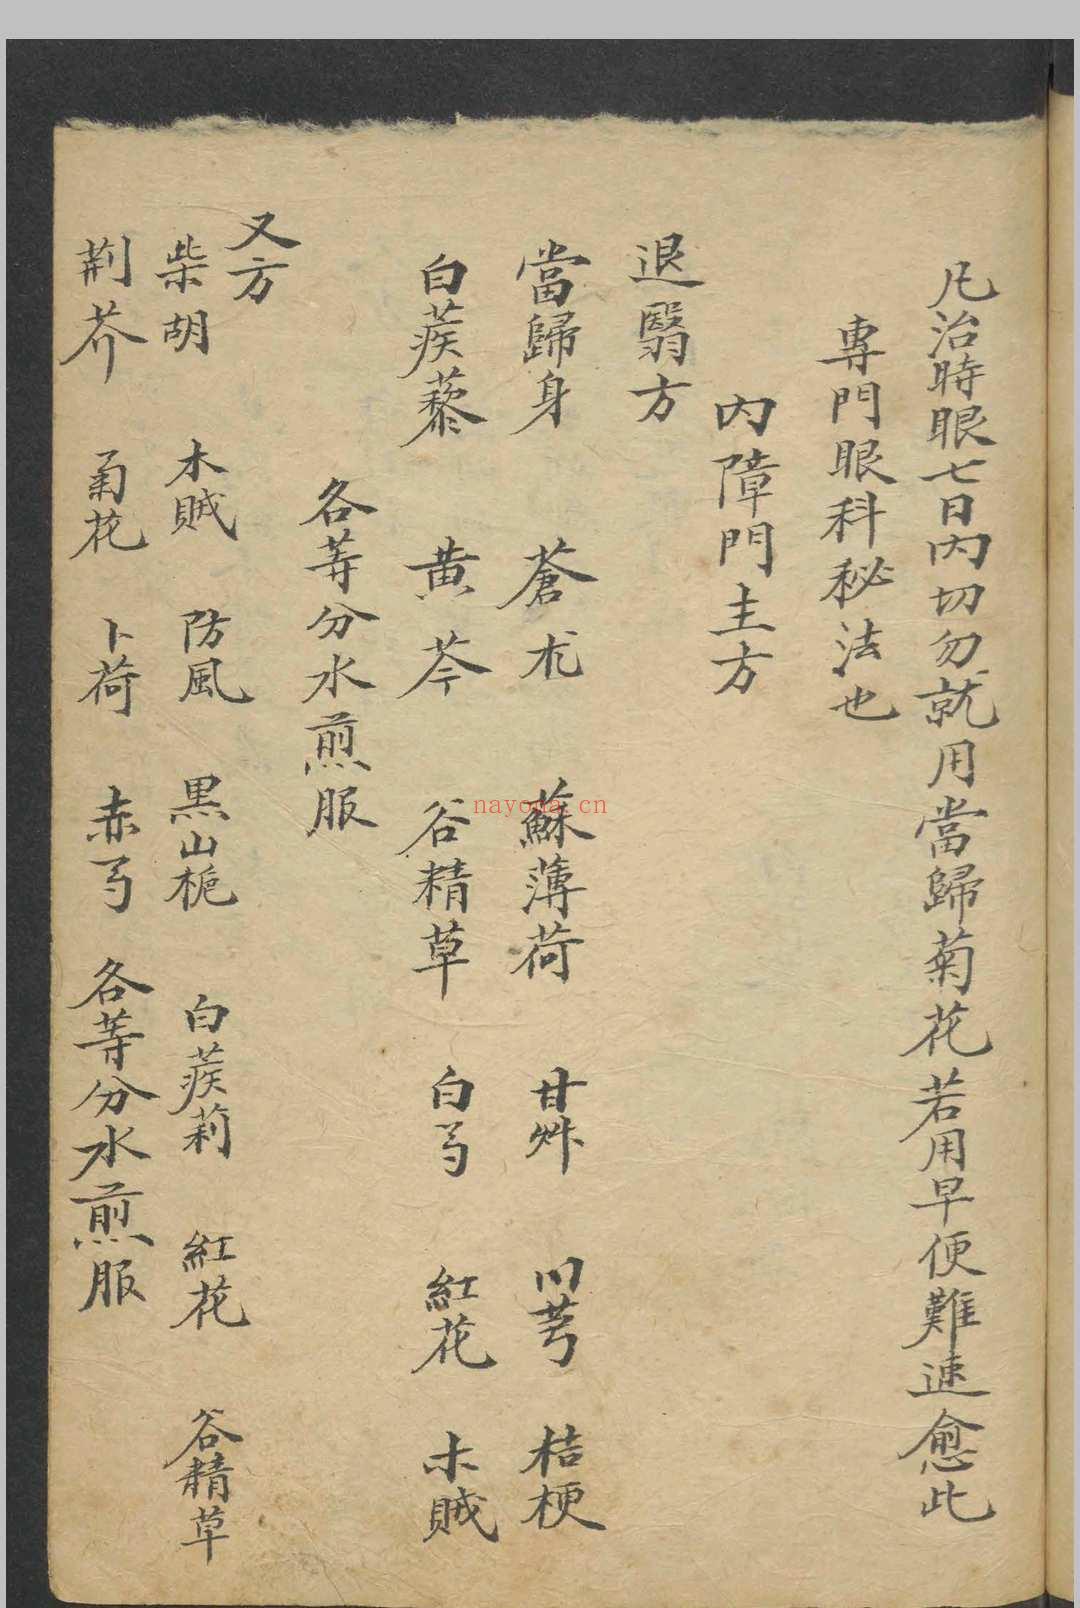 凡治時眼七日內切勿就用當歸菊花若用早便難速愈此
專門眼科秘法也
內障門主方
退翳方
當歸身 蒼朮 蘇薄荷 甘艸 川芎 桔梗
白蒺藜 黄芩 谷精草 白芍 紅花 木賊
各等分水煎服
又方
柴胡 木賊 防風 黑山梔 白蒺莉 紅花 谷精草
荆芥 菊花 卜荷 赤芍 各等分水煎服
nayona.cn